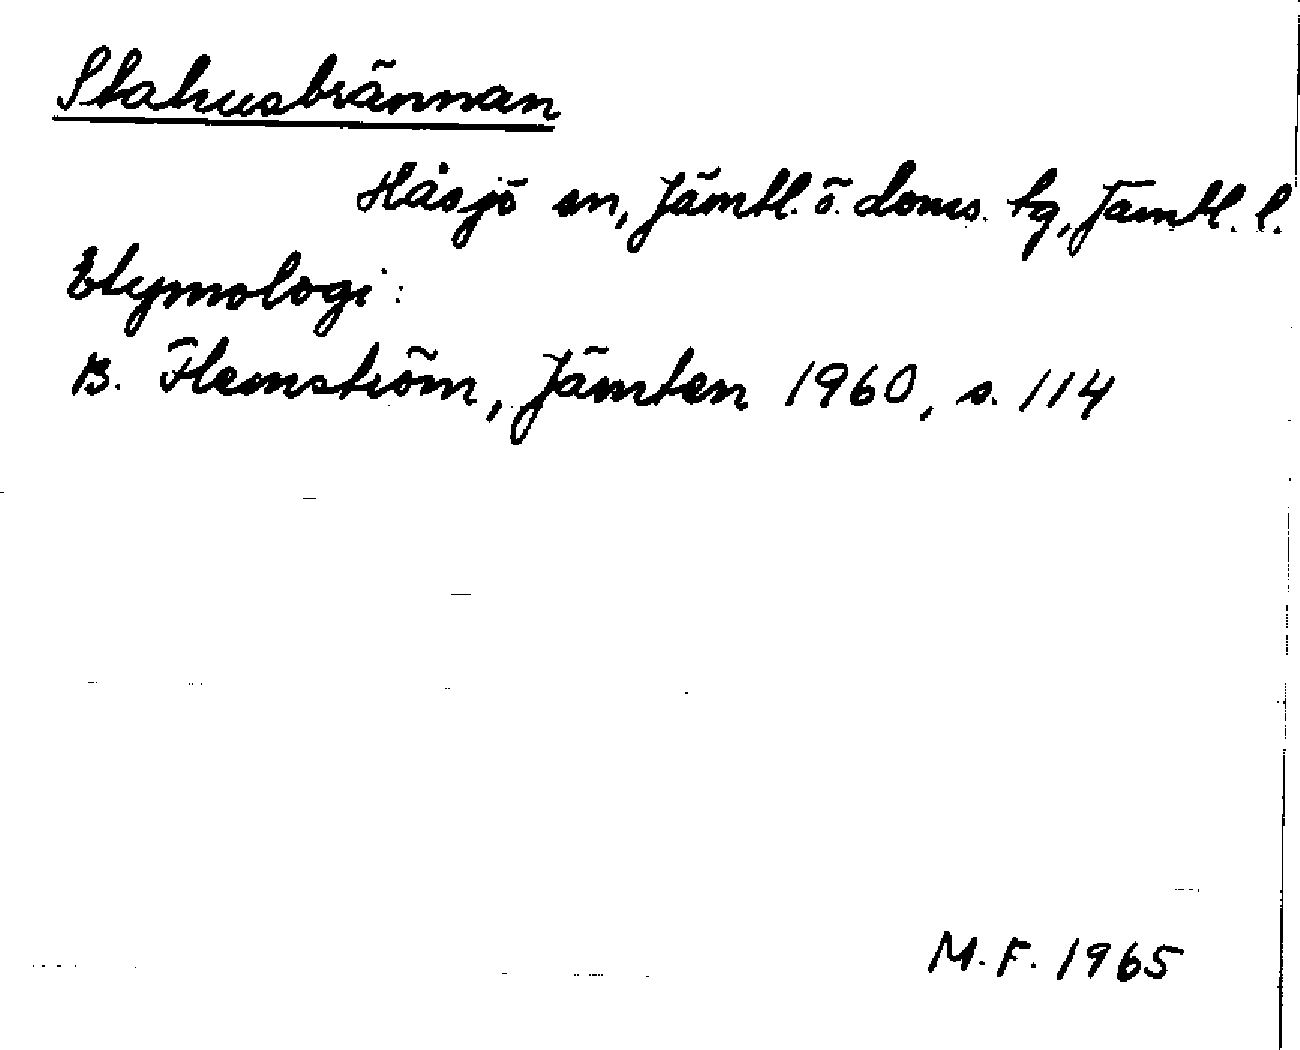 Stahusbrännan
Håsjö sn, Jämtl. ö. doms. tg, Jämtl. l.
Etymologi:
B. Flemström, Jämten 1960, s. 114
M. F. 1965